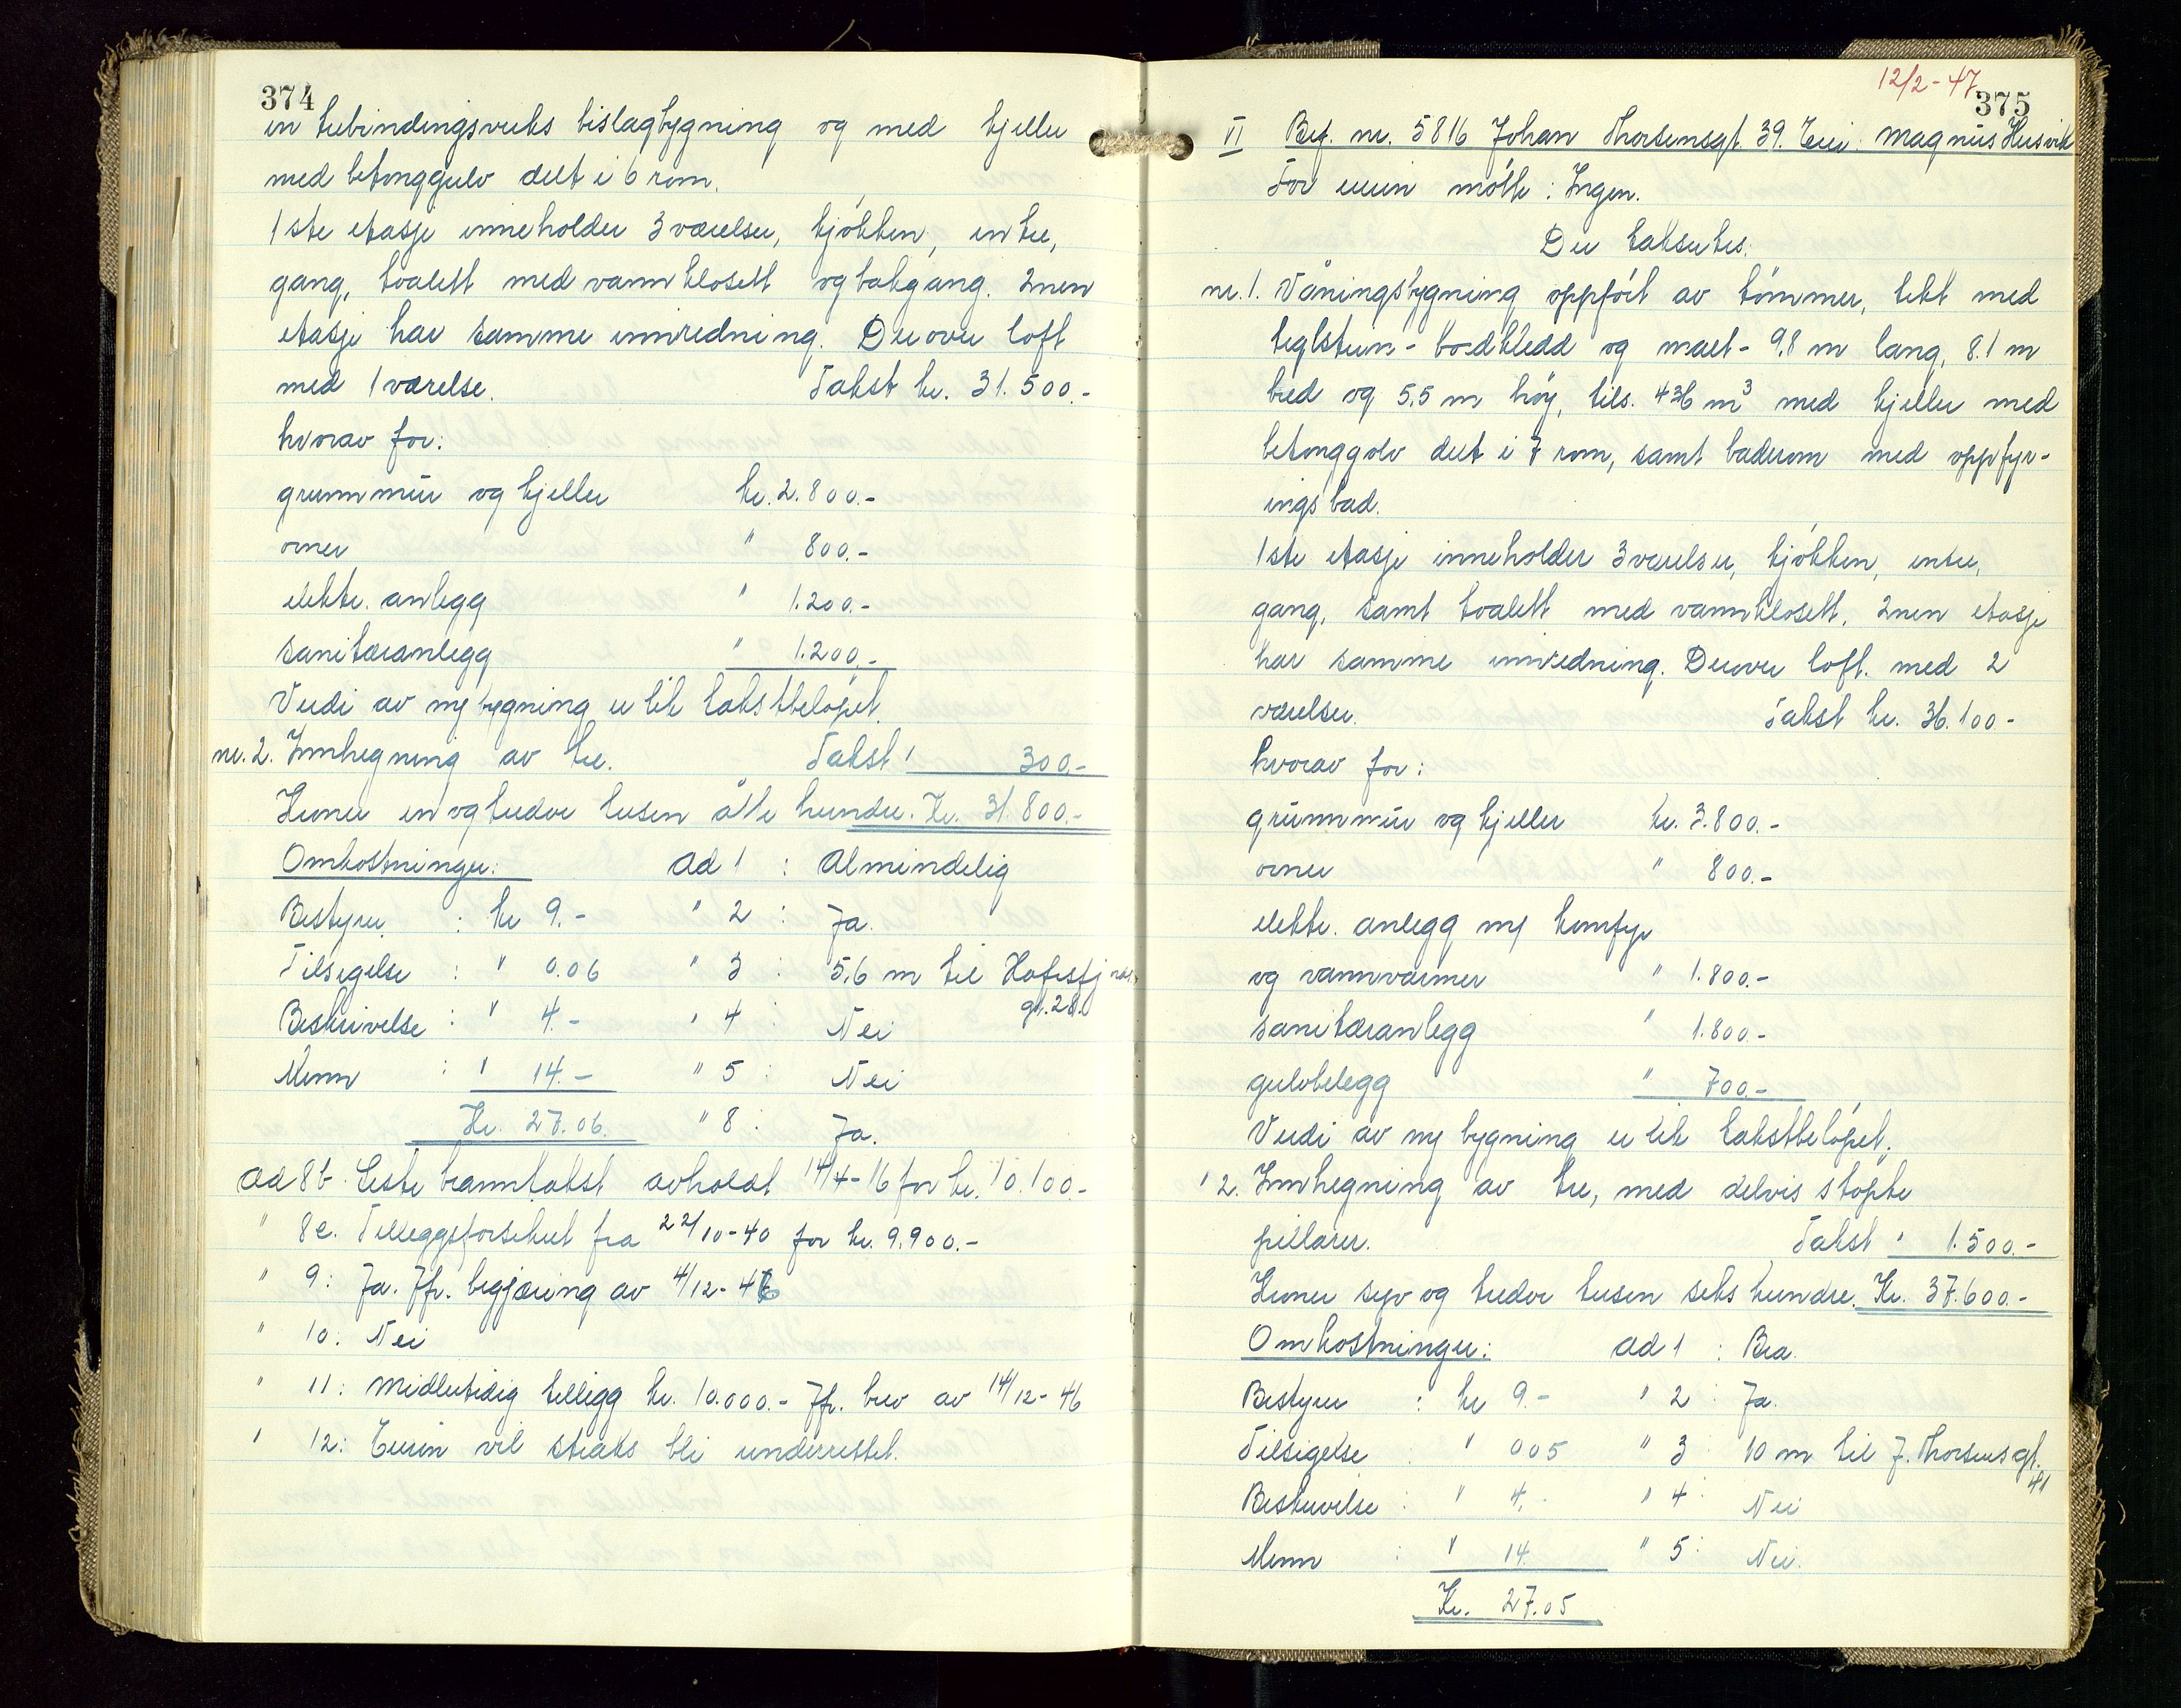 374
en utbindingsverks bislagbygning og med kjeller
med betonggulv delt i 6 rom.
1ste etasje inneholder 3 værelser, kjøkken, entre,
gang, toalett med vannklosett og bakgang. 2nen
etasje har samme innredning. Derover loft
med 1 værelse. Takst kr. 31.500.-
hvorav for:
grunnmur og kjeller kr. 2.800.-
ovner " 800.-
elektr. anlegg " 1.200.-
sanitæranlegg " 1.200.-
Verdi av ny bygning er lik takstbeløpet.
nr. 2. Innhegning av tre. Takst " 300.-
Kroner en og tredve tusen åtte hundre. Kr. 31.800.-
Omkostninger: ad 1 : Almindelig
Bestyrer : kr 9.- " 2 : Ja.
Tilsigelse : " 0.06 " 3 : 5,6 m til Hafrsfjords-
gt. 28.
Beskrivelse : " 4.- " 4 : Nei
Menn : " 14.- " 5 : Nei
Kr. 27.06. " 8 : Ja.
ad 8b. Siste branntakst avholdt 14/4-16 for kr. 10.100.-
" 8c. Tilleggsforsikret fra 22/10-40 for kr. 9.900.-
" 9: Ja. Jfr. begjæring av 4/12-46
" 10: Nei
" 11: Midlertidig tillegg kr. 10.000.- Jfr. brev av 14/12-46
" 12: Eieren vil straks bli underrettet.
12/2-47
375
VI Bef. nr. 5816 Johan Thorsensgt. 39. Eier: Magnus Husvik
For eieren møtte: Ingen.
Der takseres:
nr. 1. Våningsbygning oppført av tømmer, tekt med
teglstein - bordkledd og malt - 9,8 m lang, 8.1 m
bred og 5,5 m høy, tils. 436 m³ med kjeller med
betonggolv delt i 7 rom, samt baderom med oppfyr-
ings bad.
1ste etasje inneholder 3 værelser, kjøkken, entre,
gang, samt toalett med vannklosett, 2nen etasje
har samme innredning. Derover loft. med 2
værelser. Takst kr. 36.100-
hvorav for:
grunnmur og kjeller kr. 3.800.-
ovner " 800.-
elektr. anlegg m/ komfyr
og vannvarmer " 1.800.-
sanitæranlegg " 1.800.-
gulvbelegg " 700.-
Verdi av ny bygning er lik takstbeløpet.
" 2. Innhegning av tre, med delvis støpte
pillarer. Takst " 1.500.-
Kroner syv og tredve tusen seks hundre. Kr. 37.600.-
Omkostninger: ad 1 : Bra.
Bestyrer : kr 9.- " 2 : Ja.
Tilsigelse : " 0 05 " 3 : 10 m til J. Thorsensgt.
41
Beskrivelse : " 4.- " 4 : Nei
Menn : " 14. " 5 : Nei.
Kr. 27.05